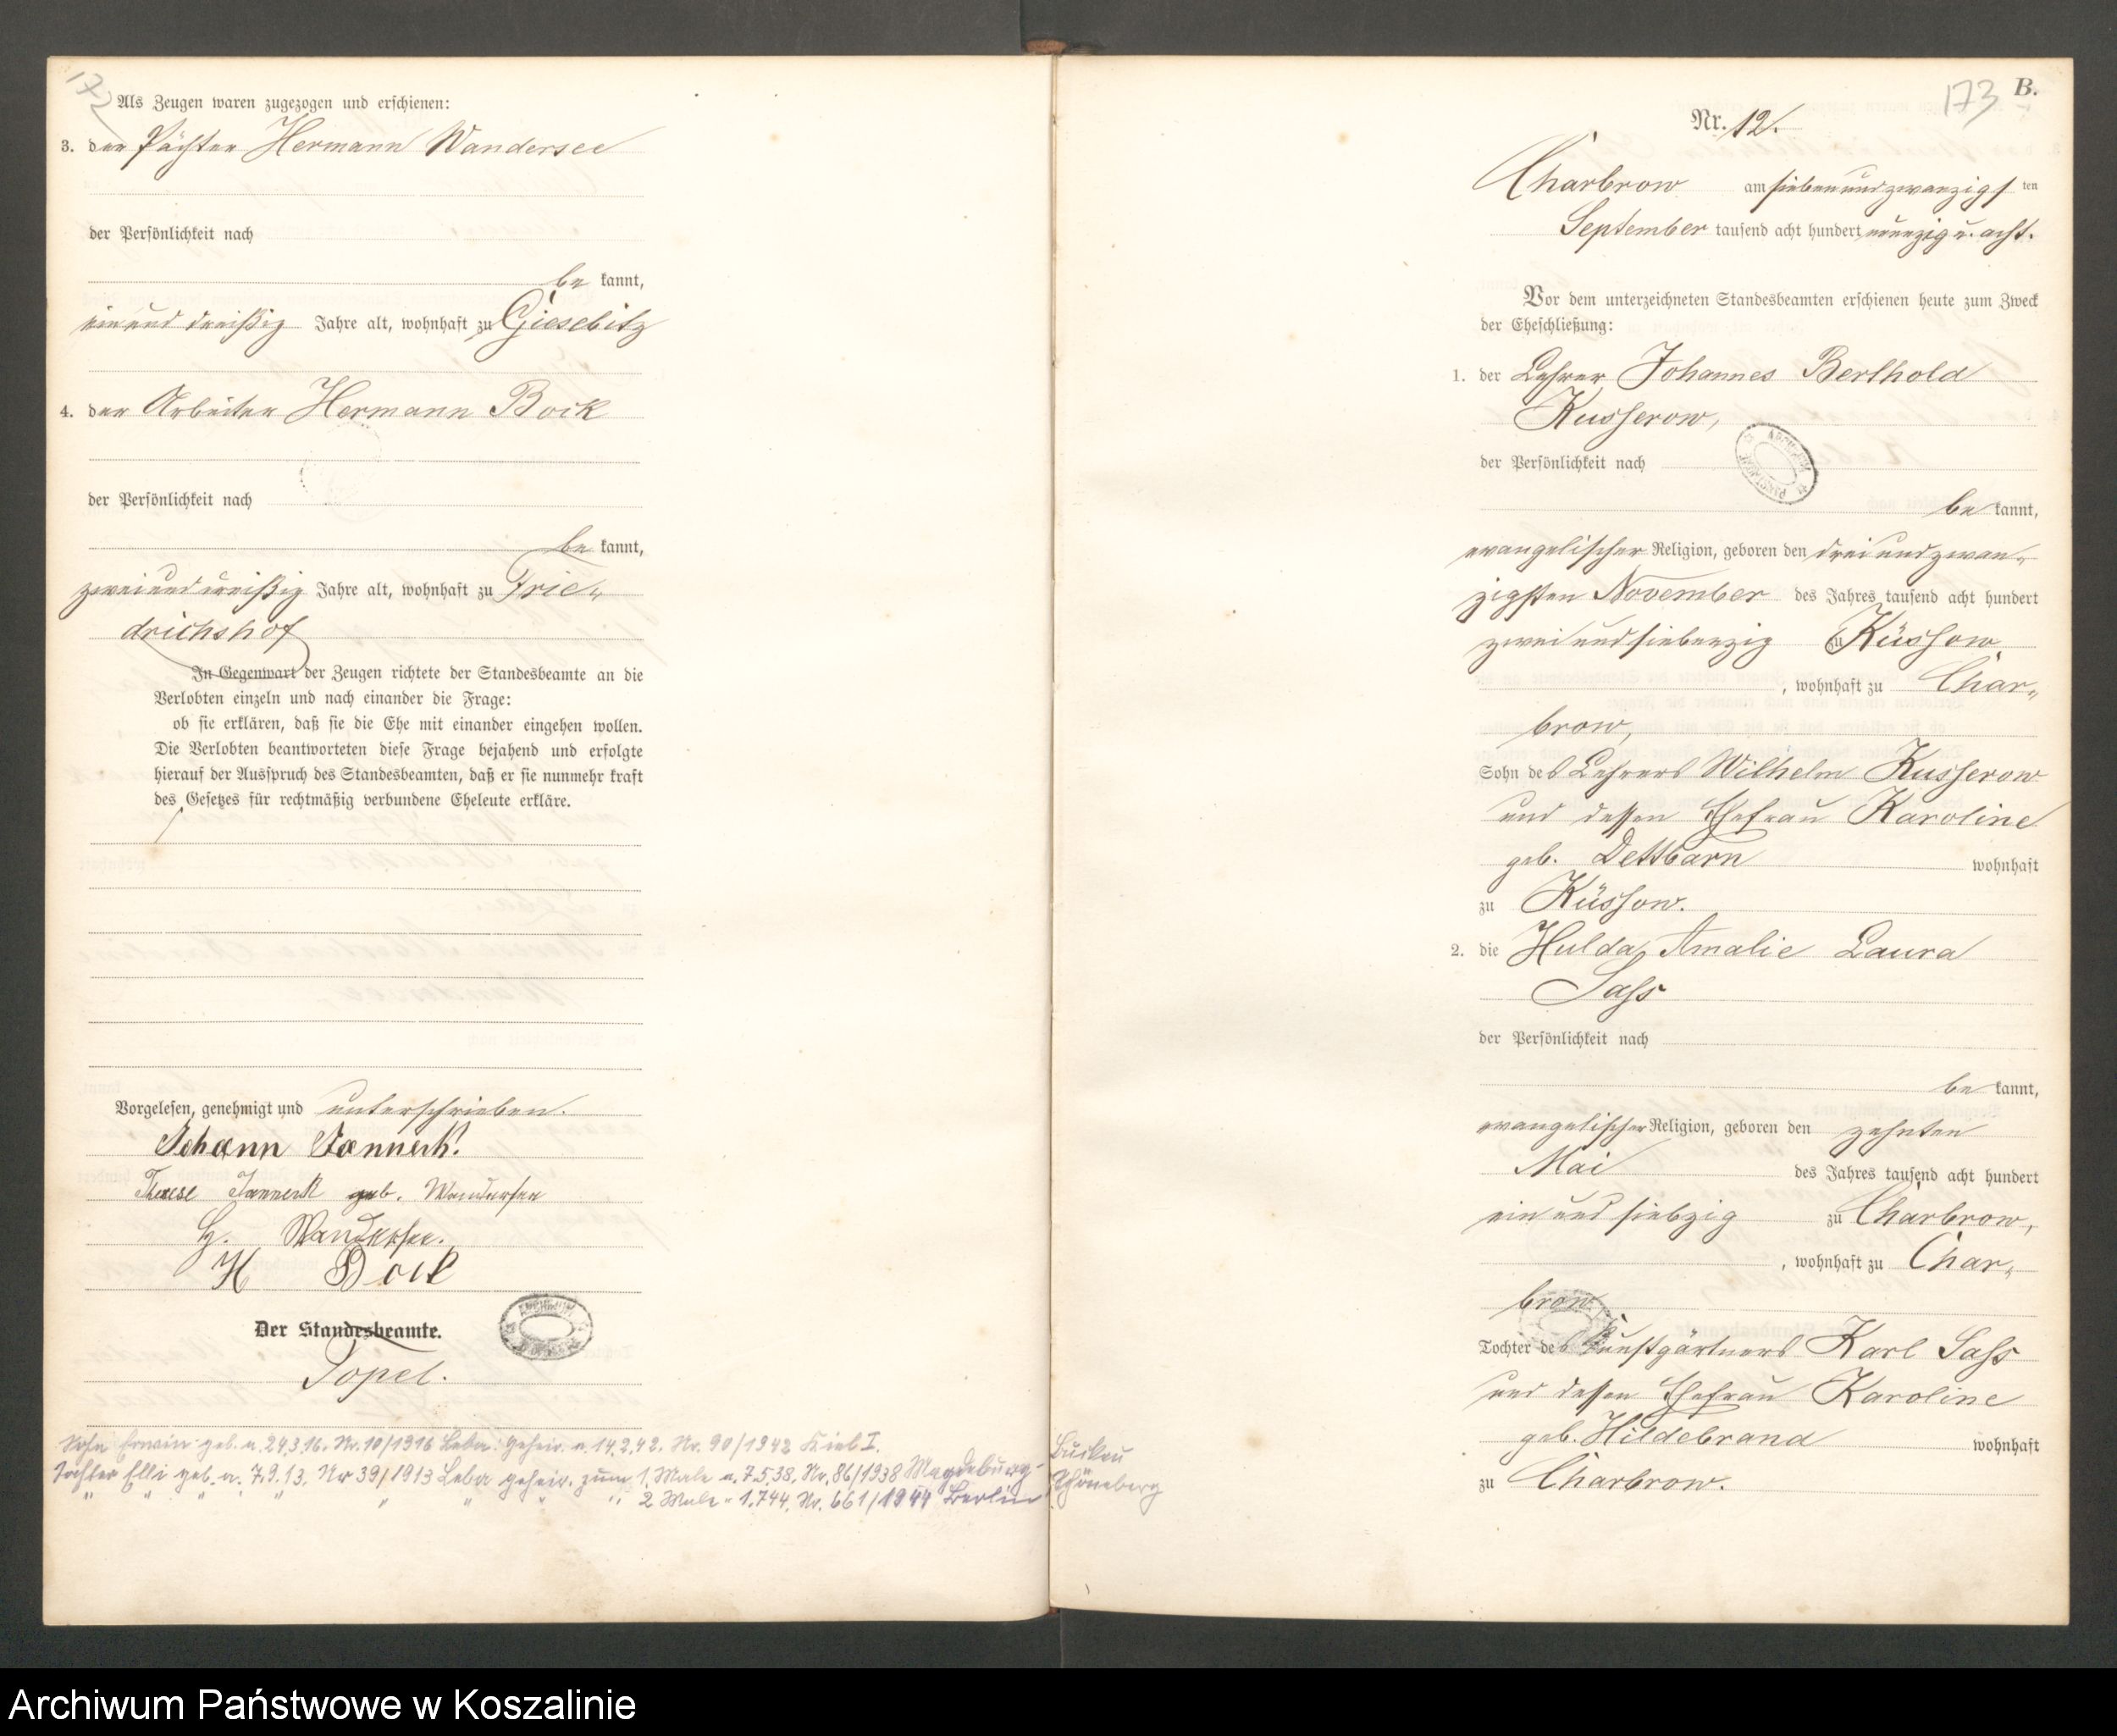 172
Als Zeugen waren zugezogen und erschienen:
3. der Pächter Hermann Wandersee
der Persönlichkeit nach
be kannt,
ein und dreißig Jahre alt, wohnhaft zu Giesebitz
4. der Arbeiter Hermann Bock
der Persönlichkeit nach
be kannt,
zwei und dreißig Jahre alt, wohnhaft zu Frie-
drichshof
In Gegenwart der Zeugen richtete der Standesbeamte an die
Verlobten einzeln und nach einander die Frage:
ob sie erklären, daß sie die Ehe mit einander eingehen wollen.
Die Verlobten beantworteten diese Frage bejahend und erfolgte
hierauf der Ausspruch des Standesbeamten, daß er sie nunmehr kraft
des Gesetzes für rechtmäßig verbundene Eheleute erkläre.
Vorgelesen, genehmigt und unterschrieben.
Johann Jannerk.
Therese Jannerk geb. Wandersee
H. Wandersee.
H Bock
Der Standesbeamte.
Topel.
Sohn Erwin geb. a. 24.3.16. Nr. 10/1916 Leba. geheir. a. 14.2.42. Nr. 90/1942 Kiel I.
Tochter Elli geb. a. 7.9.13. Nr 39/1913 Leba geheir. zum 1. Male a. 7.5.38. Nr. 86/1938 Magdeburg-Buckau
" " " " " " " " 2 Male " 1.7.44. Nr. 661/1944 Berlin Schöneberg
173
B.
Nr. 12.
Charbrow am siebenundzwanzigsten
September tausend acht hundert neunzig u. acht.
Vor dem unterzeichneten Standesbeamten erschienen heute zum Zweck
der Eheschließung:
1. der Lehrer Johannes Berthold
Kusserow,
der Persönlichkeit nach
be kannt,
evangelischer Religion, geboren den dreiundzwan-
zigsten November des Jahres tausend acht hundert
zweiundsiebenzig zu Küssow
, wohnhaft zu Char-
brow,
Sohn des Lehrers Wilhelm Kusserow
und dessen Ehefrau Karoline
geb. Dettbarn wohnhaft
zu Küssow.
2. die Hulda Amalie Laura
Sass
der Persönlichkeit nach
be kannt,
evangelischer Religion, geboren den zehnten
Mai des Jahres tausend acht hundert
ein und siebzig zu Charbrow,
, wohnhaft zu Char-
brow,
Tochter des Kunstgärtners Karl Sass
und dessen Ehefrau Karoline
geb. Hildebrand wohnhaft
zu Charbrow.
Archiwum Państwowe w Koszalinie